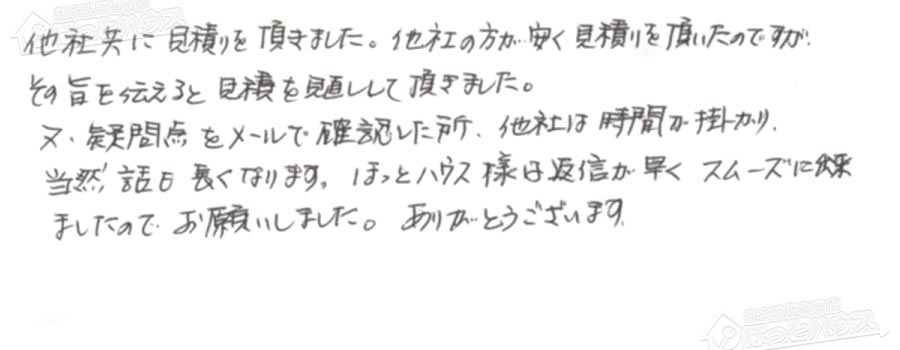 他社共に見積りを頂きました。他社の方が安く見積りを頂いたのですが、
その旨を伝えると見積を見直しして頂きました。
又、疑問点をメールで確認した所、他社は時間が掛かり、
当然話日長くなります。ほっとハウス様は返信が早くスムーズに出来
ましたので お願いしました。ありがとうございます。
ほっとハウス
ほっとハウス